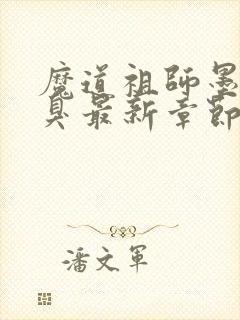 魔道祖師墨
臭最新章節
潘文軍